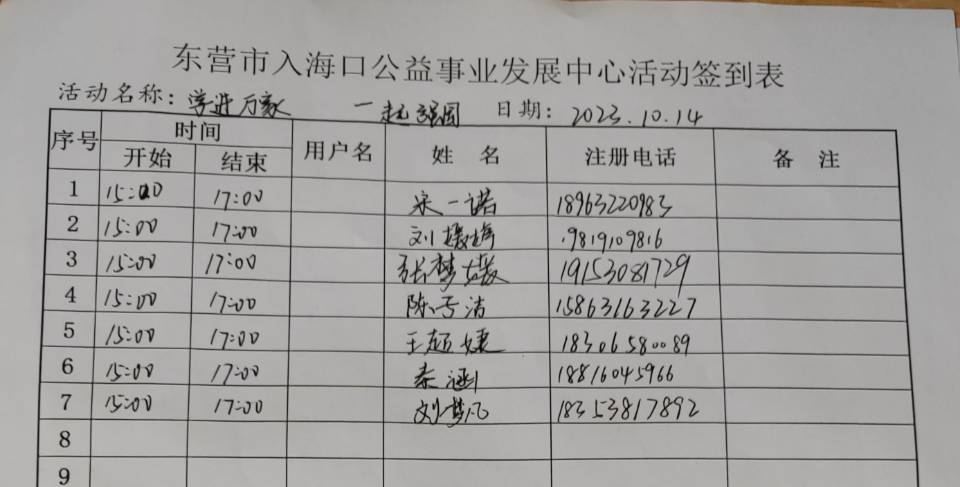 东营市入海口公益事业发展中心活动签到表
活动名称：学进万家 一起强国 日期：2023.10.14
序号 时间 用户名 姓名 注册电话 备注
开始 结束
1 15:00 17:00 宋一诺 18963220983
2 15:00 17:00 刘 9819109816
3 15:00 17:00 张梦 19153081729
4 15:00 17:00 陈 洁 15863163227
5 15:00 17:00 王超婕 18306580089
6 15:00 17:00 秦涵 18816045966
7 15:00 17:00 刘梦凡 18353817892
8
9